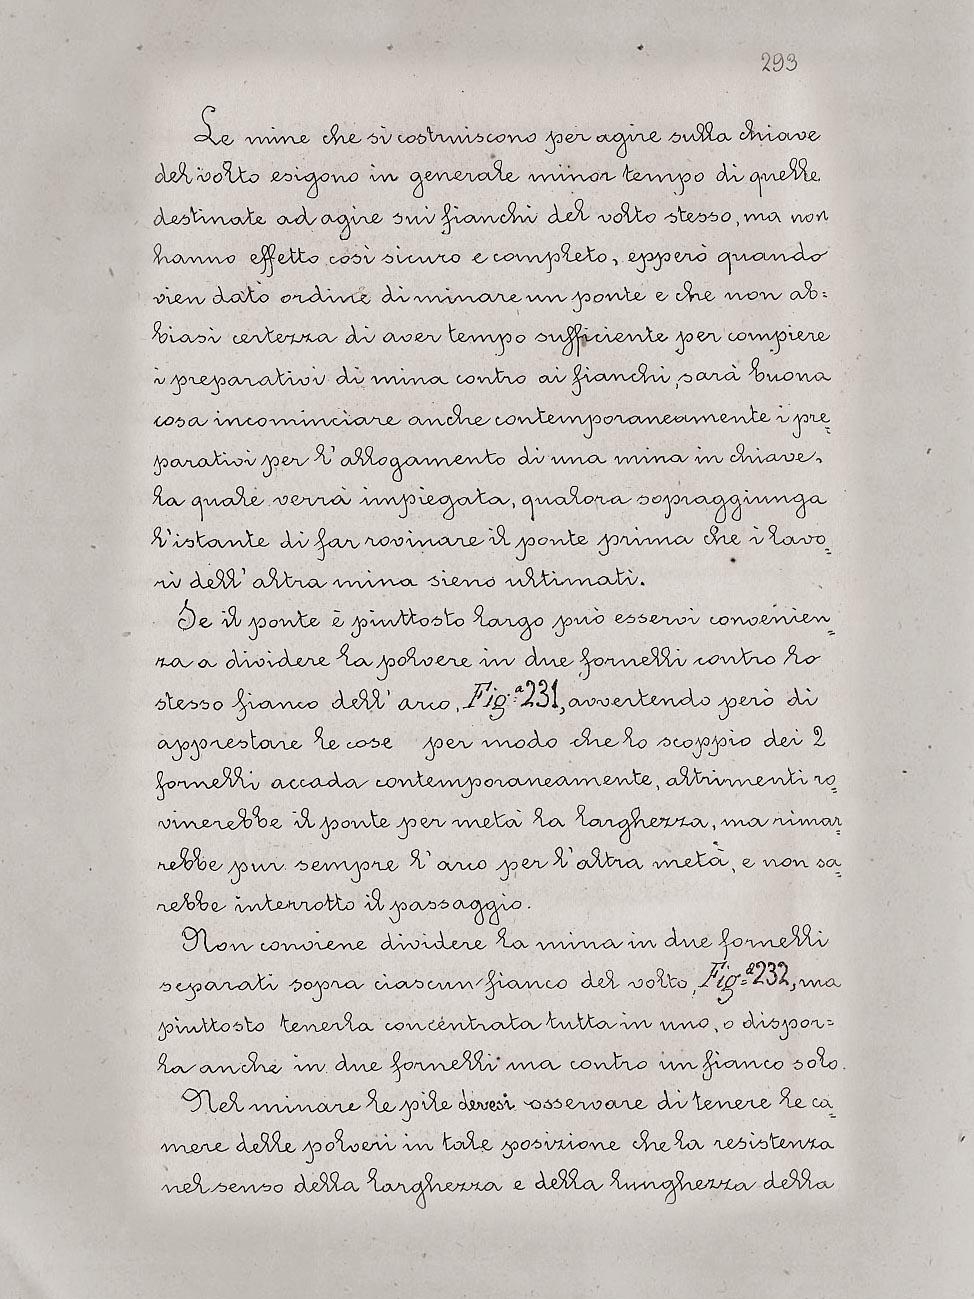 293
Le mine che si costruiscono per agire sulla chiave
del volto esigono in generale minor tempo di quelle
destinate ad agire sui fianchi del volto stesso, ma non
hanno effetto così sicuro e completo, epperò quando
vien dato ordine di minare un ponte e che non ab=
biasi certezza di aver tempo sufficiente per compiere
i preparativi di mina contro ai fianchi, sarà buona
cosa incominciare anche contemporaneamente i pre=
parativi per l'allogamento di una mina in chiave,
la quale verrà impiegata, qualora sopraggiunga
l'istante di far rovinare il ponte prima che i lavo=
ri dell'altra mina sieno ultimati.
Se il ponte è piuttosto largo può esservi convenien=
za a dividere la polvere in due fornelli contro lo
stesso fianco dell'arco, Fig.ª 231, avvertendo però di
apprestare le cose per modo che lo scoppio dei 2
fornelli accada contemporaneamente, altrimenti ro=
vinerebbe il ponte per metà la larghezza, ma rimar=
rebbe pur sempre l'arco per l'altra metà, e non sa=
rebbe interrotto il passaggio.
Non conviene dividere la mina in due fornelli
separati sopra ciascun fianco del volto, Fig.ª 232, ma
piuttosto tenerla concentrata tutta in uno, o dispor=
la anche in due fornelli ma contro un fianco solo.
Nel minare le pile devesi osservare di tenere le ca=
mere delle polveri in tale posizione che la resistenza
nel senso della larghezza e della lunghezza della